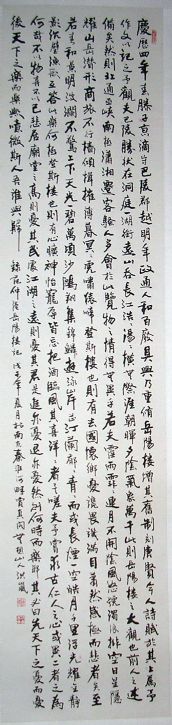 慶曆四年春滕子京謫守巴陵郡越明年政通人和百廢具興乃重修岳陽樓增其舊制刻唐賢今人詩賦於其上屬予
作文以記之予觀夫巴陵勝狀在洞庭一湖銜遠山吞長江浩浩湯湯橫無際涯朝暉夕陰氣象萬千此則岳陽樓之大觀也前人之述
備矣然則北通巫峽南極瀟湘遷客騷人多會於此覽物之情得無異乎若夫霪雨霏霏連月不開陰風怒號濁浪排空日星隱
耀山岳潛形商旅不行檣傾楫摧薄暮冥冥虎嘯猿啼登斯樓也則有去國懷鄉憂讒畏譏滿目蕭然感極而悲者矣至
若春和景明波瀾不驚上下天光一碧萬頃沙鷗翔集錦鱗游泳岸芷汀蘭郁郁青青而或長煙一空皓月千里浮光耀金靜
影沉璧漁歌互答此樂何極登斯樓也則有心曠神怡寵辱皆忘把酒臨風其喜洋洋者矣嗟夫予嘗求古仁人之心或異二者之為
何哉不以物喜不以己悲居廟堂之高則憂其民處江湖之遠則憂其君是進亦憂退亦憂然則何時而樂耶其必曰先天下之憂而憂
後天下之樂而樂歟噫微斯人吾誰與歸
錄范仲淹岳陽樓記 戊子年夏月於南京秦淮河畔